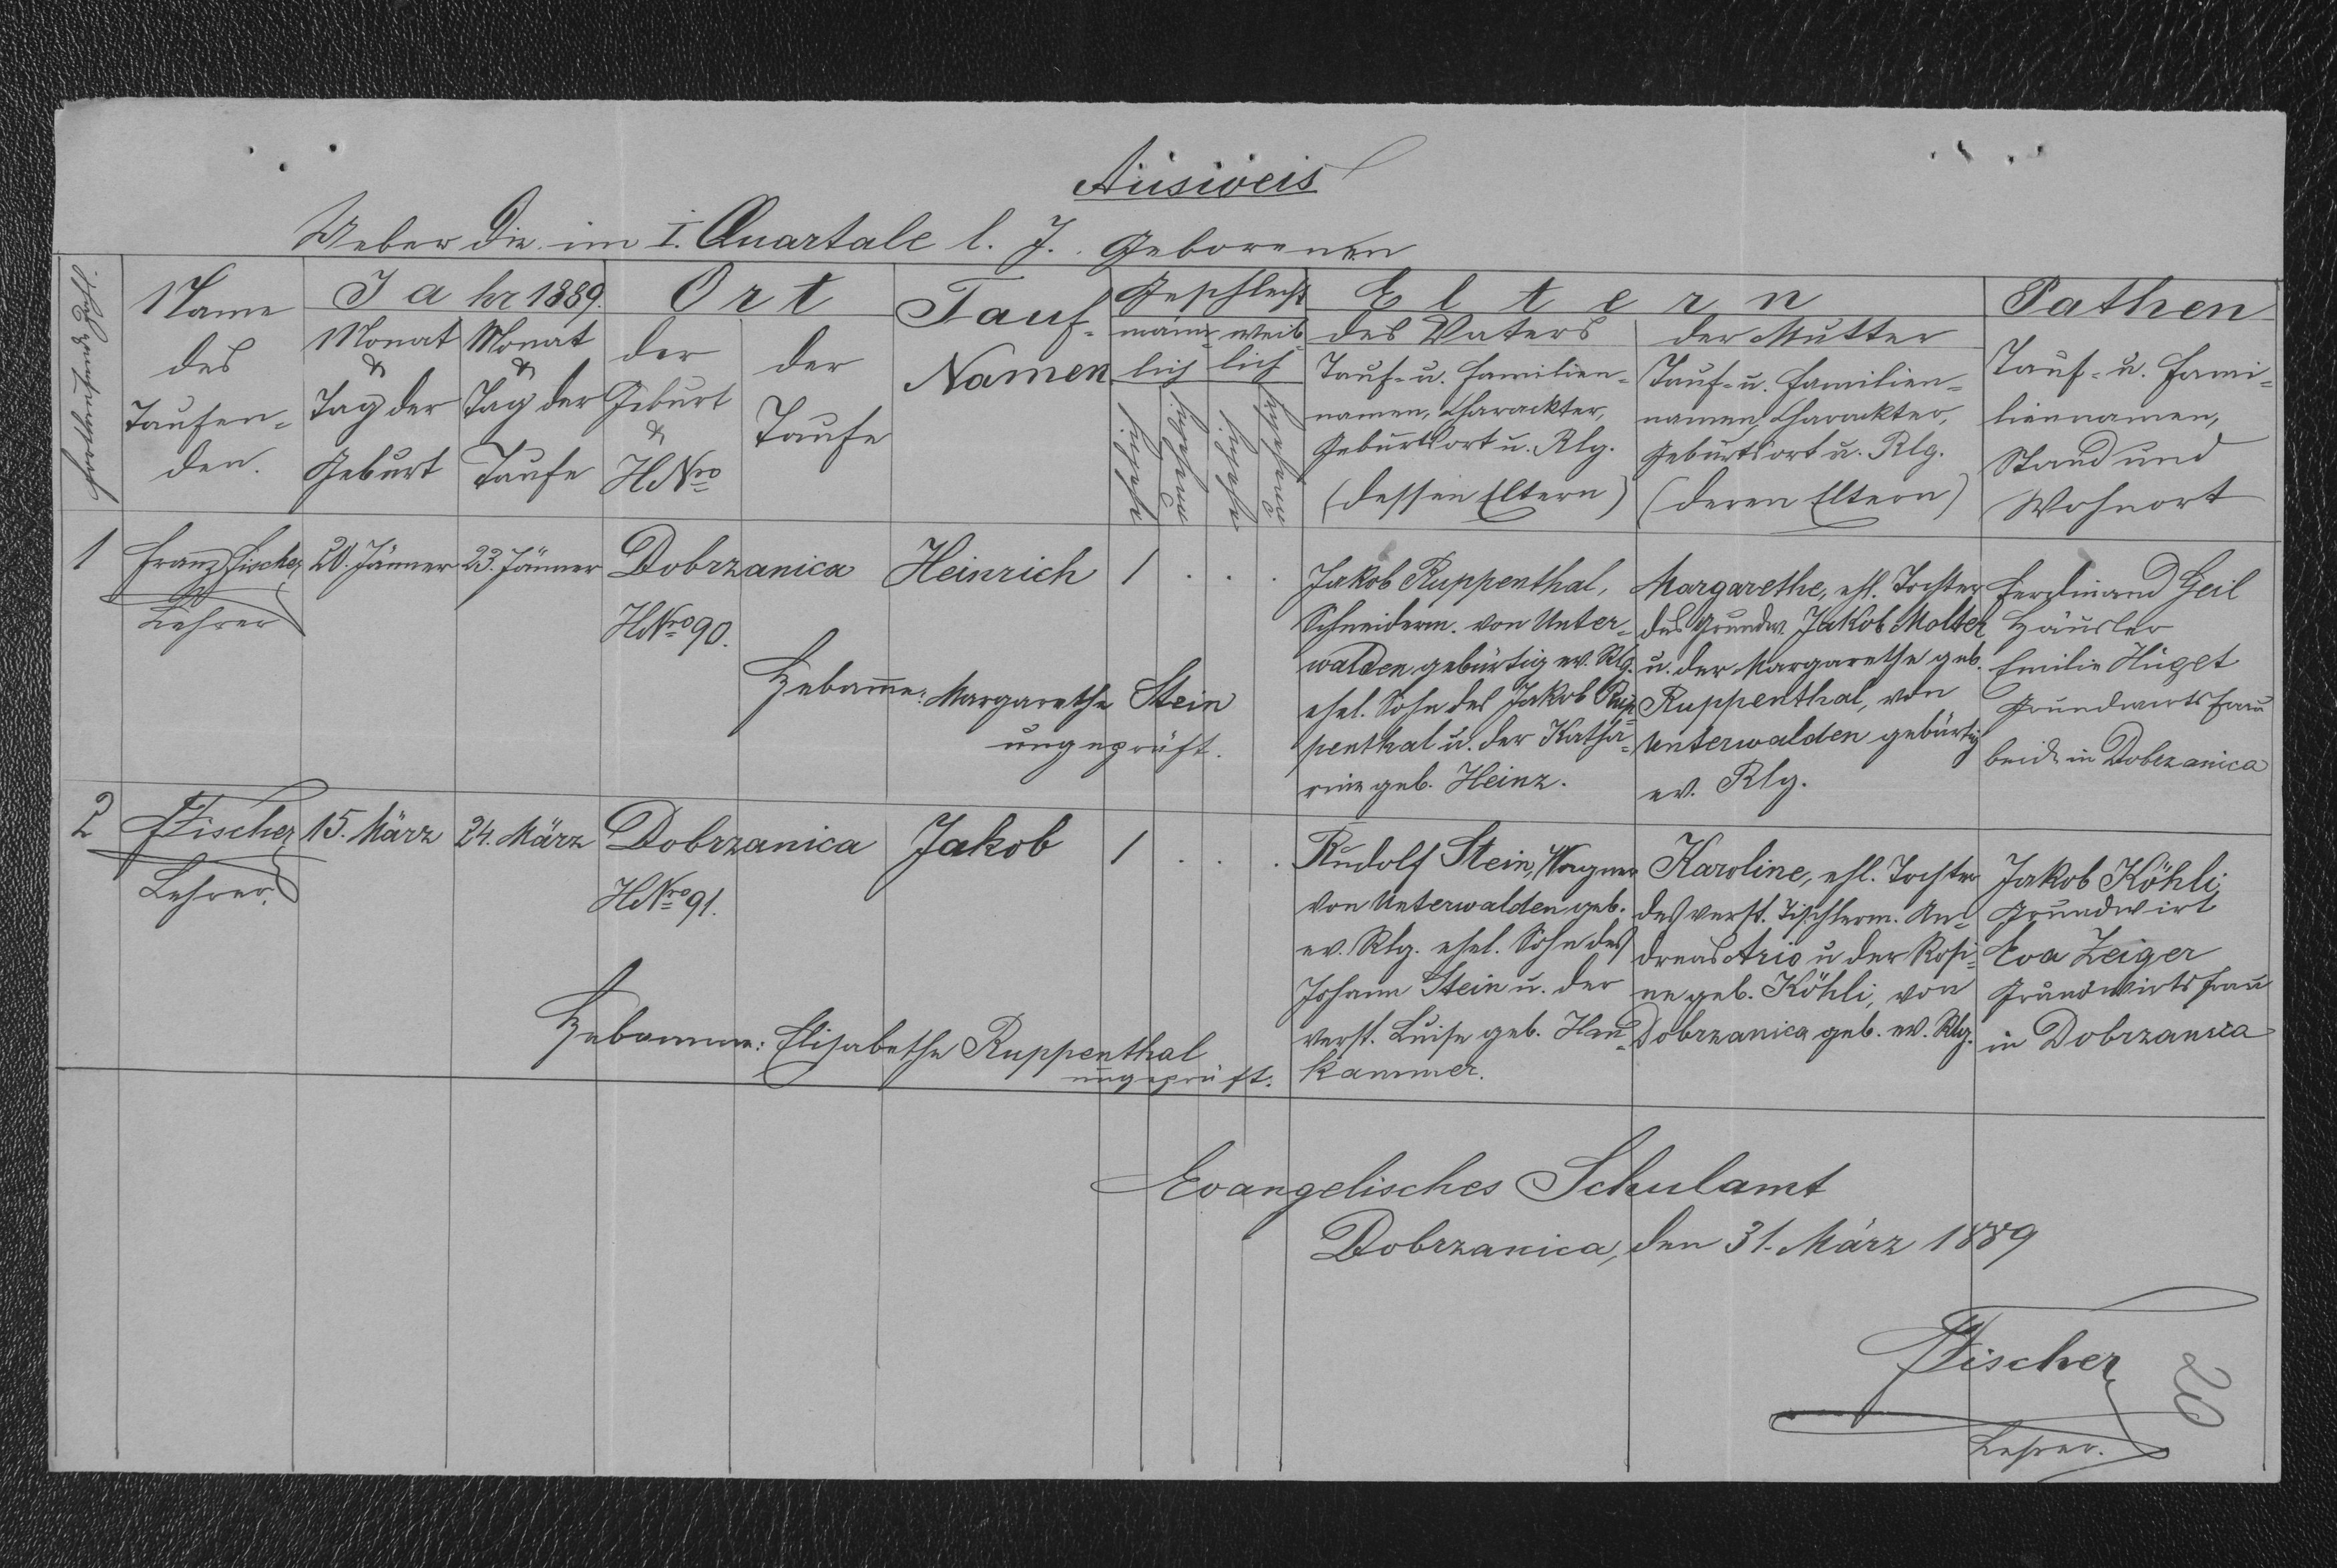 Ausweis
Ueber die im I. Quartale l. J. Geborenen
Fortlaufungszahl
Name
des
Taufen-
den.
Jahr 1889.
Monat
&
Tag der
Geburt
Monat
&
Tag der
Taufe
Ort
der
Geburt
&
HNro
der
Taufe
Tauf-
Namen
Geschlecht
männ-
lich
weib-
lich
ehelich
unehelich
ehelich
unehelich
Eltern
des Vaters
Tauf- u. Familien-
namen, Charackter,
Geburtsort u. Rlg.
(dessen Eltern)
der Mutter
Tauf- u. Familien-
namen, Charackter,
Geburtsort u. Rlg.
(deren Eltern)
Pathen
Tauf- u. Fami-
liennamen,
Stand und
Wohnort
1
Franz Fischer
Lehrer
20. Jänner
23. Jänner
Dobrzanica
HNro 90.
Heinrich
1 . . .
Hebamme: Margarethe Stein
ungeprüft.
Jakob Ruppenthal,
Schneiderm. von Unter-
walden gebürtig ev. Rlg.
ehel. Sohn des Jakob Rup-
penthal u. der Katha-
rine geb. Heinz.
Margarethe, ehl. Tochter
des Grundw. Jakob Molter
u. der Margarethe geb.
Ruppenthal, von
Unterwalden gebürtig
ev. Rlg.
Ferdinand Geil
Häusler
Emilie Huget
Grundwirtsfrau
beide in Dobrzanica
2
Fischer
Lehrer.
15. März
24. März
Dobrzanica
HNro 91.
Jakob
1 . . .
Hebamme: Elisabethe Ruppenthal
ungeprüft.
Rudolf Stein, Wagner
von Unterwalden geb.
ev. Rlg. ehel. Sohn des
Johann Stein u. der
verst. Luise geb. Heu-
kammer.
Karoline, ehl. Tochter
des verst. Tischlerm. An-
dreas Ario u der Rosi-
ne geb. Köhli, von
Dobrzanica geb. ev. Rlg.
Jakob Köhli,
Grundwirt
Eva Zeiger
Grundwirtsfrau
in Dobrzanica
Evangelisches Schulamt
Dobrzanica, den 31. März 1889
Fischer
Lehrer.
20